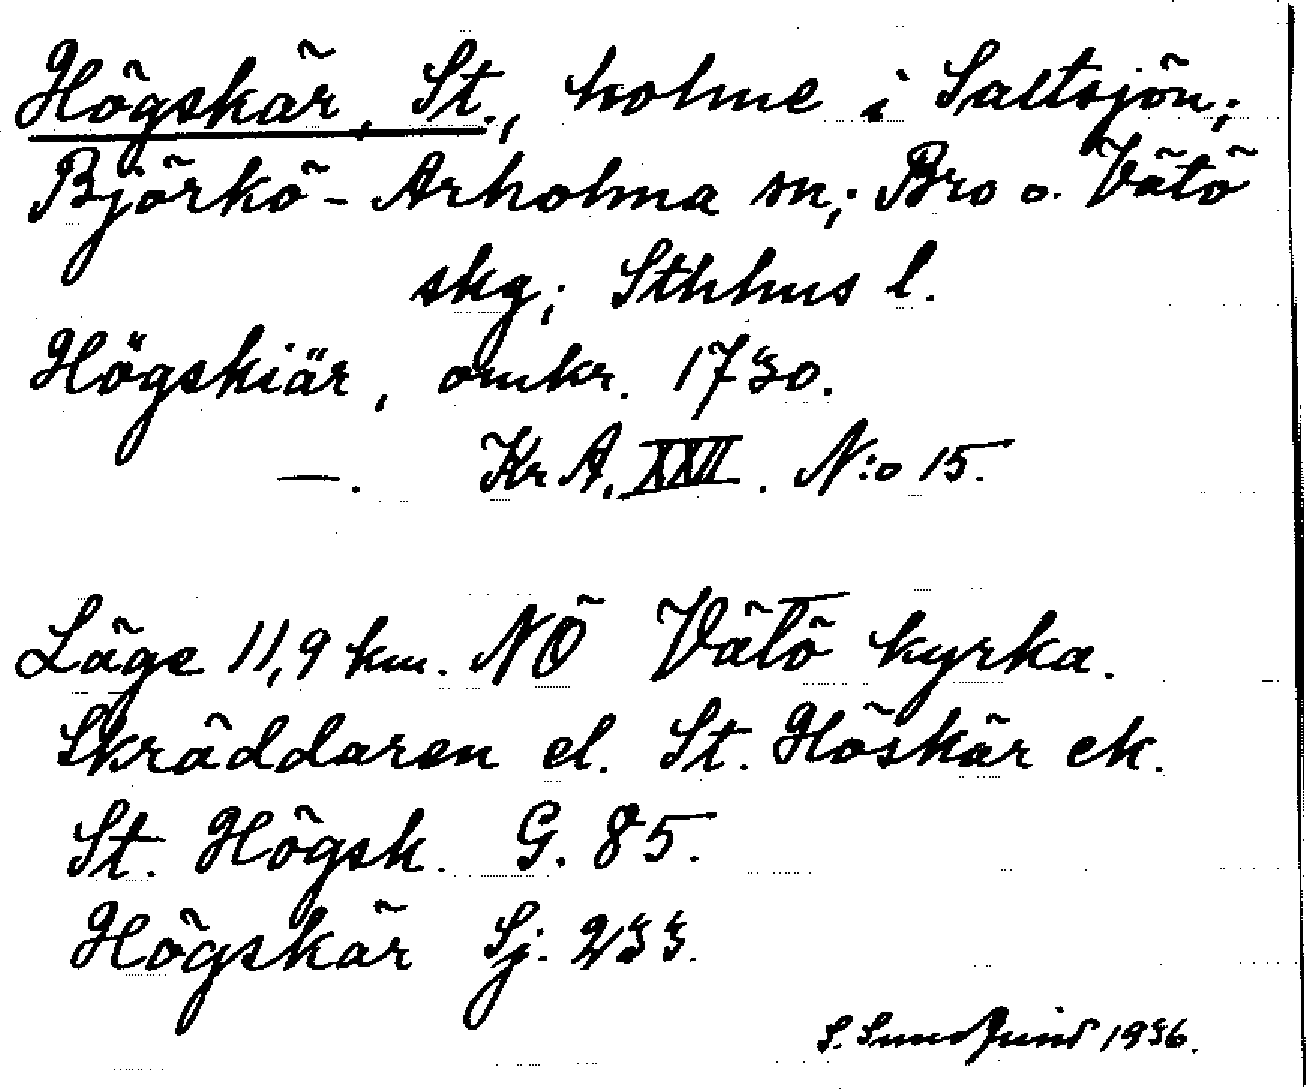 Högskär, St., holme i Saltsjön;
Björkö-Arholma sn; Bro o. Vätö
skg; Sthlms l.
Högskiär, omkr. 1730.
—. Kr A. XXII. N:o 15.
Läge 11,9 km. NÖ Vätö kyrka.
Skräddaren el. St. Höskär ek.
St. Högsk. G. 85.
Högskär Sj. 233.
S. 1936.